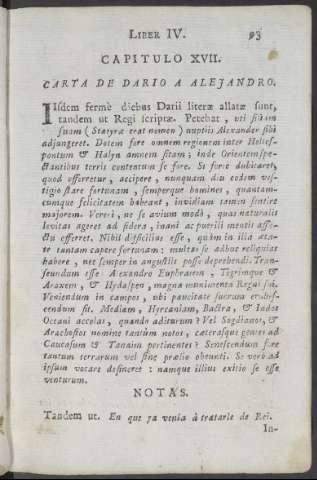 LIBER IV. 93
CAPITULO XVII.
CARTA DE DARIO A ALEJANDRO.
IIsdem fermè diebus Darii literæ allatæ sunt,
tandem ut Regi scriptæ. Petebat, uti filiam
suam (Statyræ erat nomen) nuptiis Alexander sibi
adjungeret. Dotem fore omnem regionem inter Helles-
pontum & Halyn amnem sitam; inde Orientem spe-
ctantibus terris contentum se fore. Si fortè dubitaret,
quod offerretur, accipere, nunquam diu eodem ves-
tigio stare fortunam, semperque homines, quantam-
cumque felicitatem habeant, invidiam tamen sentire
majorem. Vereri, ne se avium modò, quas naturalis
levitas ageret ad sidera, inani ac puerili mentis affe-
ctu efferret. Nihil difficilius esse, quàm in illa æta-
te tantam capere fortunam: multas se adhuc reliquias
habere, nec semper in angustiis posse deprehendi. Tran-
seundum esse Alexandro Euphratem, Tigrimque &
Araxem, & Hydaspem, magna munimenta Regni sui.
Veniendum in campos, ubi paucitate suorum erubes-
cendum sit. Mediam, Hyrcaniam, Bactra, & Indos
Oceani accolas, quando aditurum? Vel Sogdianos, &
Arachosios nomine tantùm notos, cæterasque gentes ad
Caucasum & Tanaim pertinentes? Senescendum fore
tantum terrarum vel sine prælio obeunti. Se verò ad
ipsum vocare desineret: namque illius exitio se esse
venturum.
NOTAS.
Tandem ut. En que ya venia à tratarle de Rei.
In-